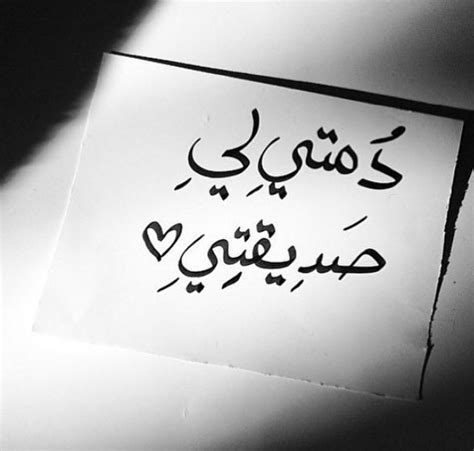 دُمتي لِي
صَديقتِي ♡